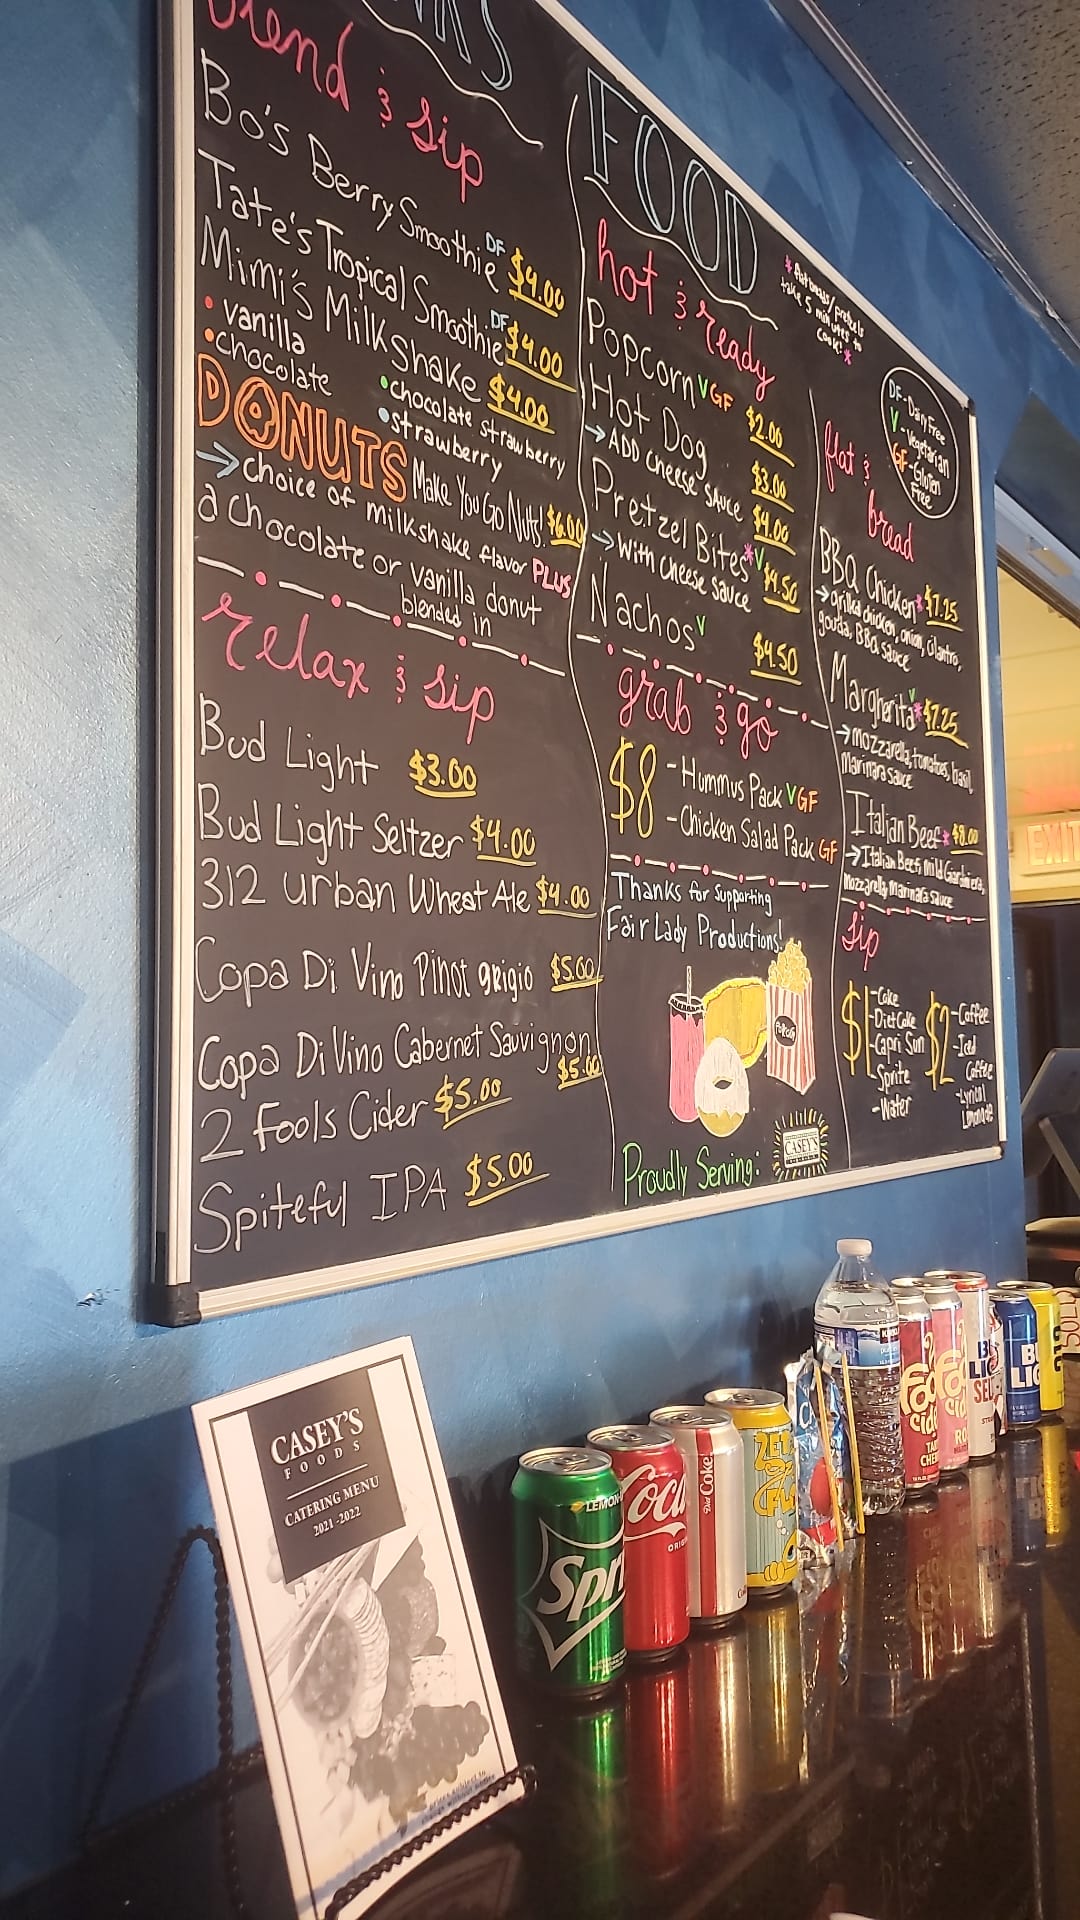 blend & sip
Bo's Berry Smoothie DF $4.00
Tate's Tropical Smoothie DF $4.00
Mimi's Milkshake $4.00
• vanilla
• chocolate
• chocolate strawberry
• strawberry
DONUTS Make You Go Nuts! $6.00
→ choice of milkshake flavor PLUS
a chocolate or vanilla donut
blended in
relax & sip
Bud Light $3.00
Bud Light Seltzer $4.00
312 urban Wheat Ale $4.00
Copa Di Vino Pinot grigio $5.00
Copa Di Vino Cabernet Sauvignon
$5.00
2 Fools Cider $5.00
Spiteful IPA $5.00
FOOD
hot & ready
* flatbreads/pretzels
take 5 minutes to
cook! *
Popcorn V GF $2.00
Hot Dog $3.00
→ ADD cheese sauce $4.00
Pretzel Bites * V $4.50
→ With cheese sauce
Nachos V $4.50
grab & go
$8 - Hummus Pack V GF
- Chicken Salad Pack GF
Thanks for supporting
Fair Lady Productions!
POPCORN
Proudly Serving:
CASEY'S
DF - Dairy Free
V - Vegetarian
GF - Gluten
Free
flat &
bread
BBQ Chicken * $7.25
→ grilled chicken, onion, cilantro,
gouda, BBQ sauce
Margherita V * $7.25
→ mozzarella, tomatoes, basil,
Marinara sauce
Italian Beef * $8.00
→ Italian Beef, Mild Giardiniera,
Mozzarella, Marinara Sauce
sip
$1 - Coke
- Diet Coke
- Capri Sun
- Sprite
- Water
$2 - Coffee
- Iced
Coffee
- Lyrical
Lemonade
EXIT
CASEY'S
FOODS
CATERING MENU
2021-2022
prices subject to
change without notice
LEMON
Spri
Coca
ORIG
Diet Coke
Foo
cide
TA
CHE
Foo
cid
RO
BU
LIG
SEL
BU
LIG
312